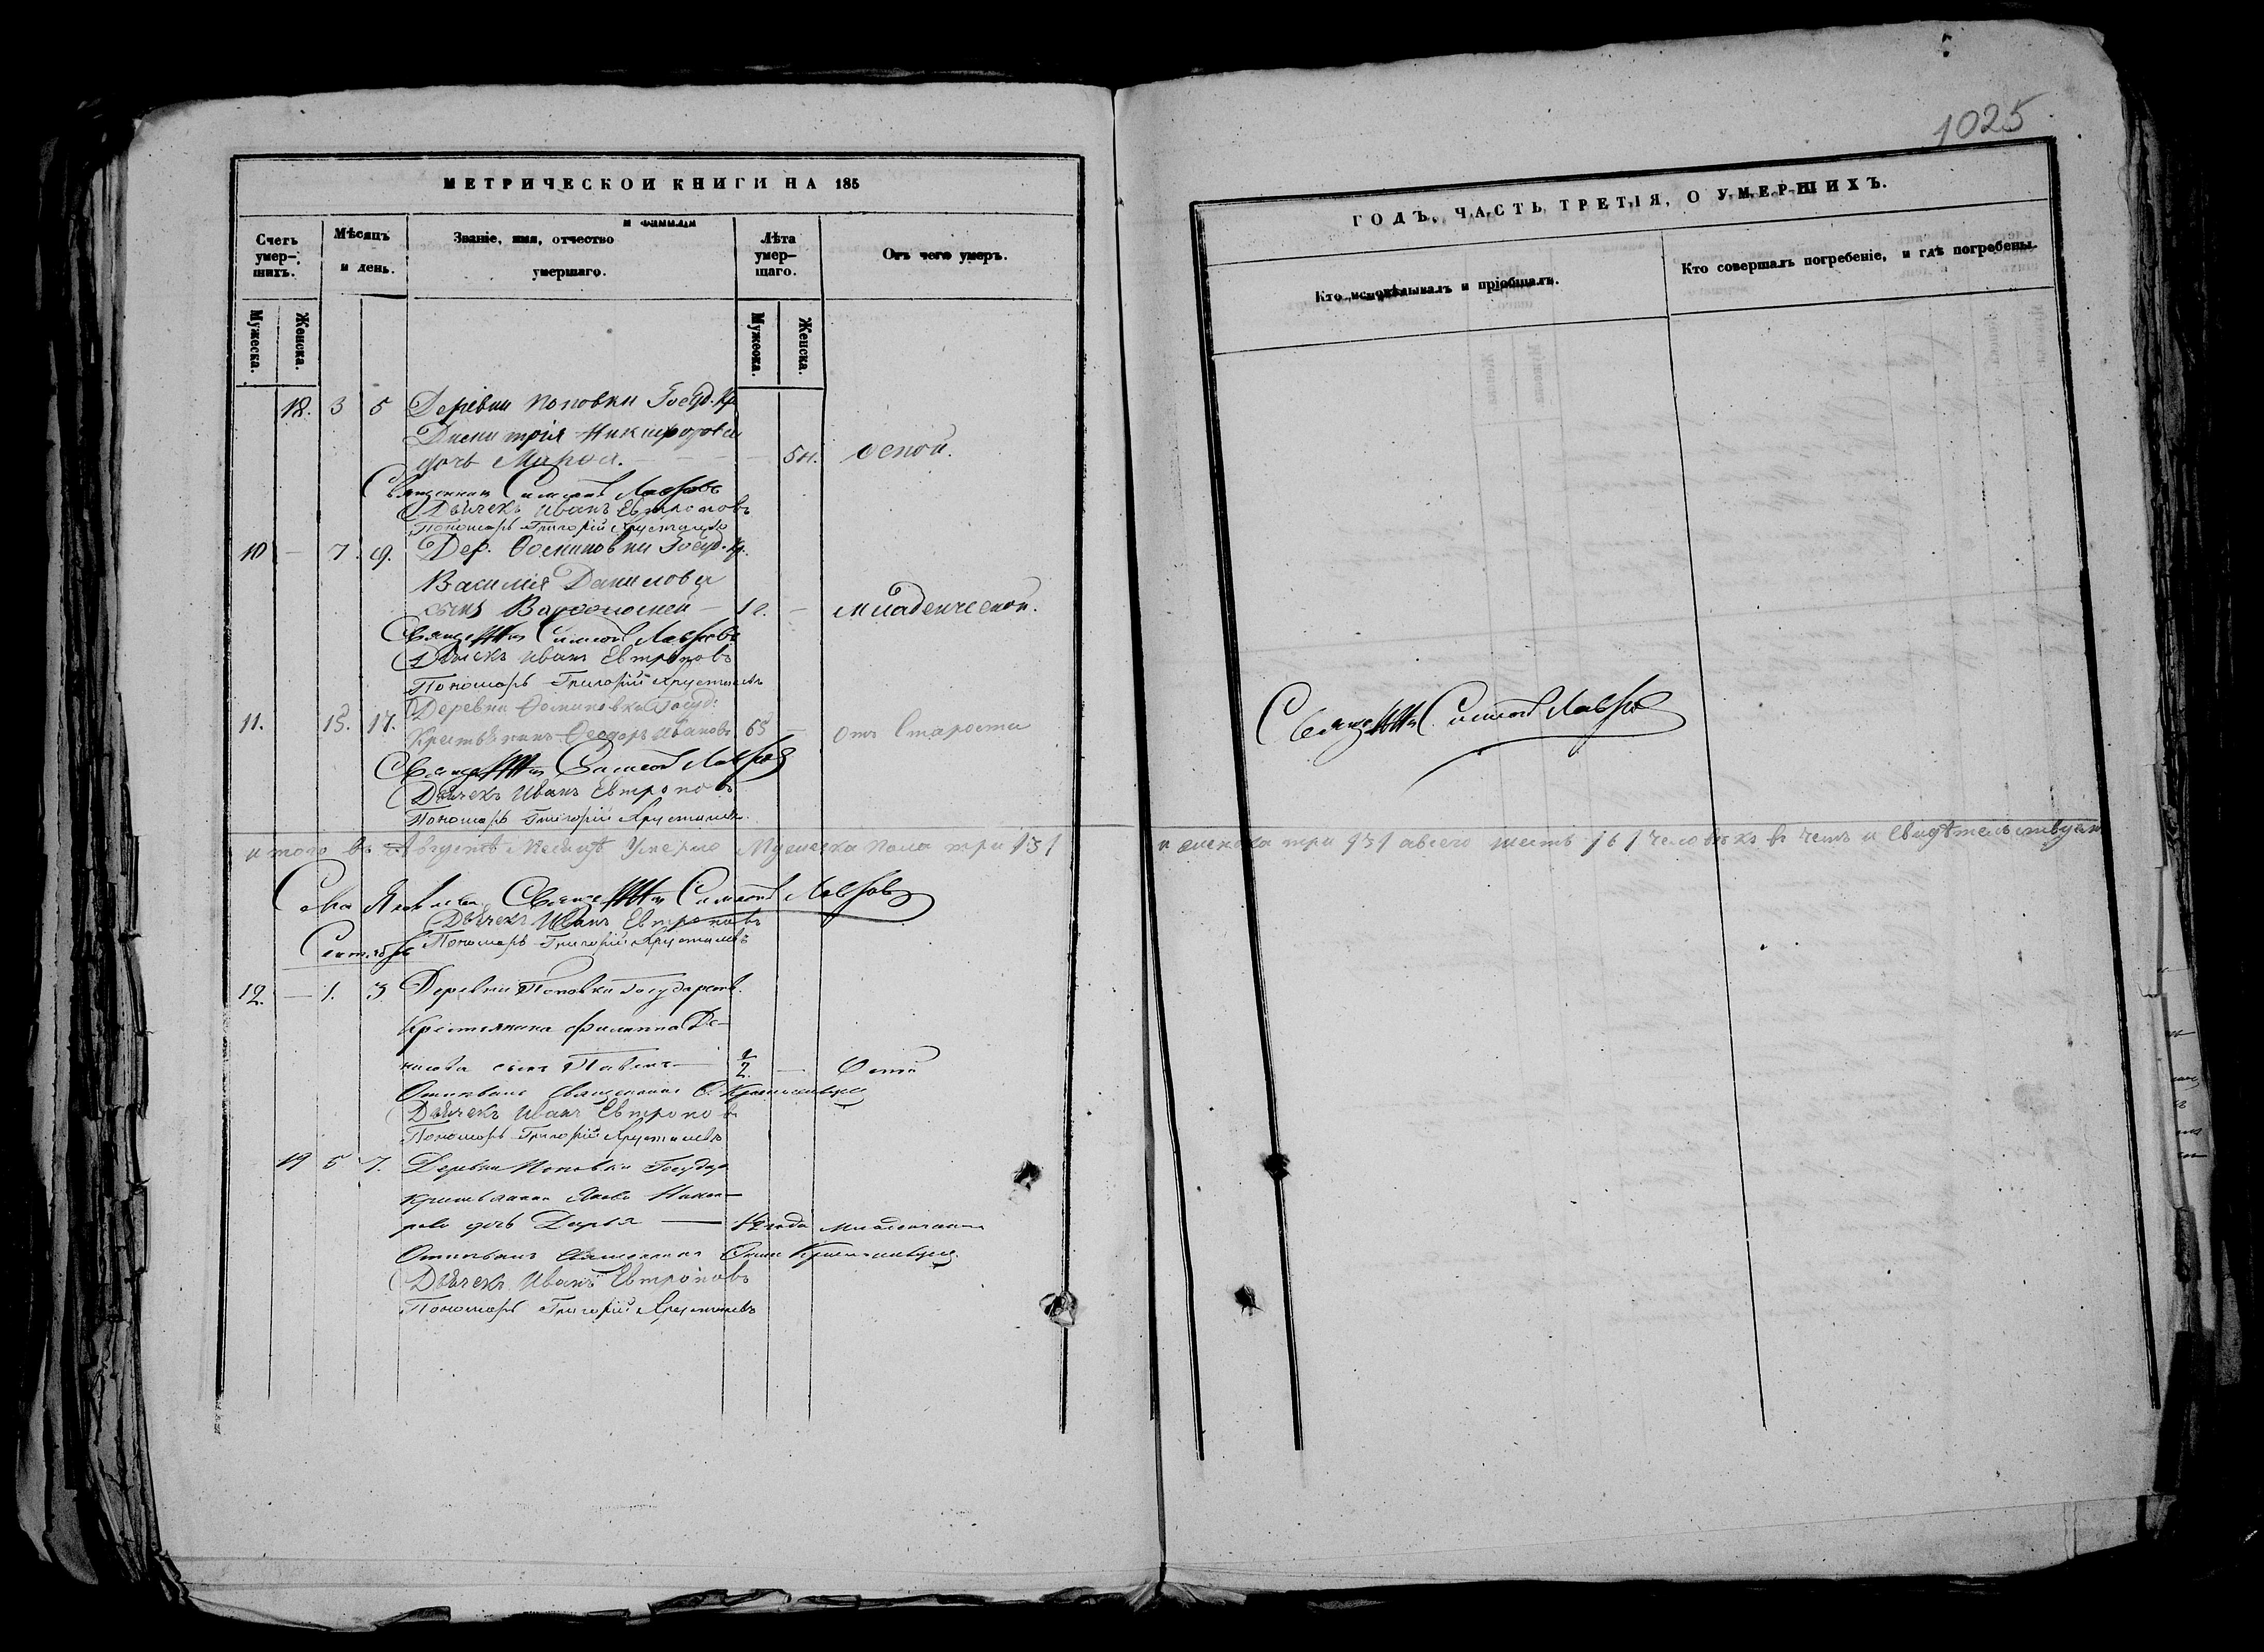 1025
МЕТРИЧЕСКОЙ КНИГИ НА 185
ГОДЪ, ЧАСТЬ ТРЕТІЯ, О УМЕРШИХЪ.
Счетъ умер-шихъ.
Мѣсяцъ и день.
Званіе, имя, отчество и фамилія умершаго.
Лѣта умер-шаго.
Отъ чего умеръ.
Кто исповѣдывалъ и пріобщалъ.
Кто совершалъ погребеніе, и гдѣ погребены.
Мужеска. Женска.
Мужеска. Женска.
18. 3 5 Деревни Поповки Госуд. Кр.
Димитрія Никифорова
дочь Марѳа. 5 н. оспой.
Священникъ Симеонъ Лавровъ
Дьячекъ Иванъ Евтроповъ
Пономарь Григорій Хрусталевъ
10 — 7. 9. Дер. Госуд. Кр.
Василія Данилова
сынъ Варѳоломей — 1 г. — младенческой.
Симеонъ Лавровъ
Дьячекъ Иванъ Евтроповъ
Пономарь Григорій Хрусталевъ
11. 15. 17. Деревни Госуд.
Крестьянинъ Ѳеодоръ Ивановъ 65 — отъ Старости
Симеонъ Лавровъ
Дьячекъ Иванъ Евтроповъ
Пономарь Григорій Хрусталевъ
Симеонъ Лавровъ
итого въ Августѣ Месяцѣ Умерло Мужеска пола три /3/ и женска три /3/ а всего шесть /6/ человѣкъ в чемъ и свидѣтельствуемъ
Симеонъ Лавровъ
Дьячекъ Иванъ Евтроповъ
Пономарь Григорій Хрусталевъ
Сентябрь
12. — 1. 3 Деревни Поповки Государств.
Крестьянина Филиппа Де-
нисова сынъ Павелъ — 1/2. —
Отпѣвалъ священникъ
Дьячекъ Иванъ Евтроповъ
Пономарь Григорій Хрусталевъ
19 5 7. Деревни Поповки Государ
дочь Дарья — 1/2 года
Отпѣвалъ священникъ
Дьячекъ Иванъ Евтроповъ
Пономарь Григорій Хрусталевъ